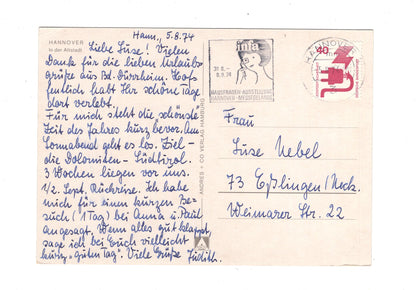 Hann., 5.8.74
HANNOVER
In der Altstadt
Liebe Suse! Vielen
Dank für die lieben Urlaubs
grüße aus Bd. Dürrheim. Hof-
fentlich habt Ihr schöne Tage
dort verlebt.
Für mich steht die schönste
Zeit des Jahres kurz bevor. Am
Sonnabend geht es los. Ziel-
die Dolomiten - Südtirol.
3 Wochen liegen vor uns.
1/2. Sept. Rückreise. Ich habe
mich für einen kurzen Be-
such (1 Tag) bei Anna u. Paul
angesagt. Wenn alles gut klappt,
sage ich bei Euch vielleicht
kurz "guten Tag". Viele Grüße Judith.
ANDRES + CO VERLAG HAMBURG
infa
31. 8. -
8. 9. 74
HAUSFRAUEN-AUSSTELLUNG
HANNOVER-MESSEGELÄNDE
HANNOVER
40
Frau
Suse Nebel
73 Eßlingen/Neck.
Weimarer Str. 22